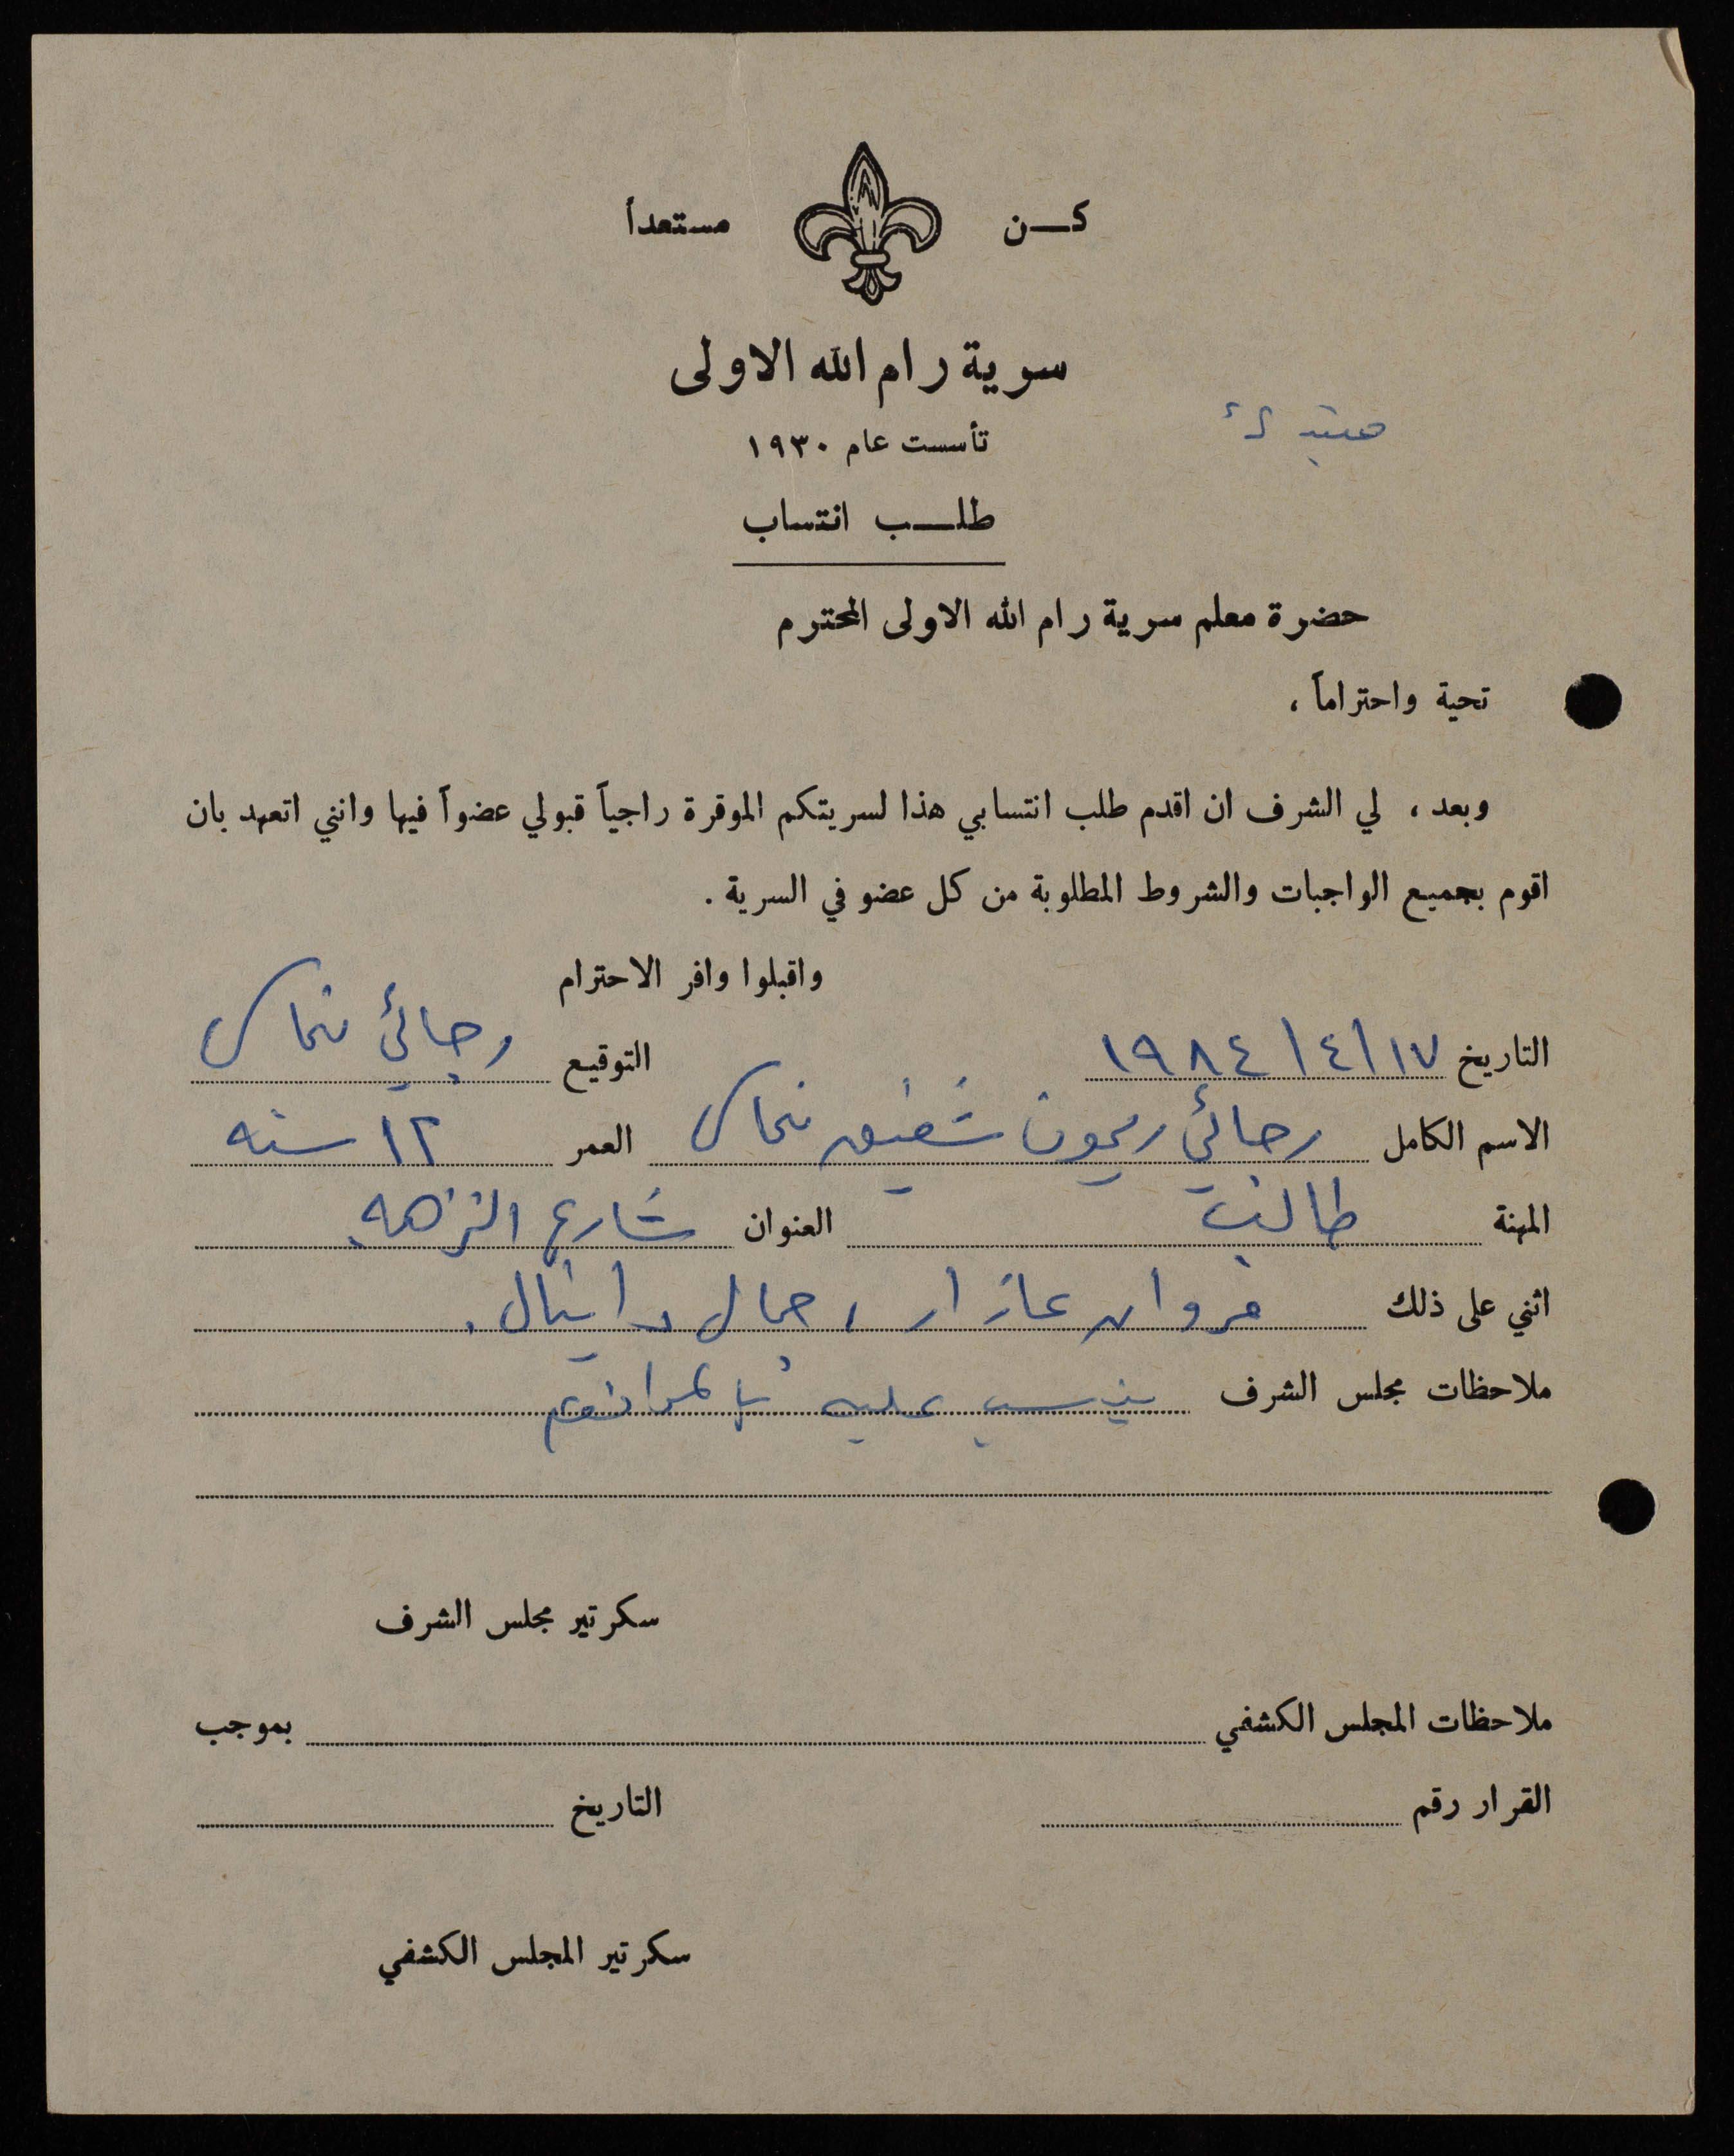 كـن مستعداً
سرية رام الله الاولى
تأسست عام ١٩٣٠
طلـب انتساب
حضرة معلم سرية رام الله الاولى المحترم
تحية واحتراماً ،
وبعد ، لي الشرف ان اقدم طلب انتسابي هذا لسريتكم الموقرة راجياً قبولي عضواً فيها وانني اتعهد بان
اقوم بجميع الواجبات والشروط المطلوبة من كل عضو في السرية .
واقبلوا وافر الاحترام
التاريخ ١٧/٤/١٩٨٤ التوقيع رجائي نحاس
الاسم الكامل رجائي ريمون شفيق نحاس العمر ١٢ سنه
المهنة طالب العنوان شارع النزهه
اثني على ذلك مروان عازار ، جمال دانيال .
ملاحظات مجلس الشرف ينسب عليه بالموافقة
سكرتير مجلس الشرف
ملاحظات المجلس الكشفي بموجب
القرار رقم التاريخ
سكرتير المجلس الكشفي